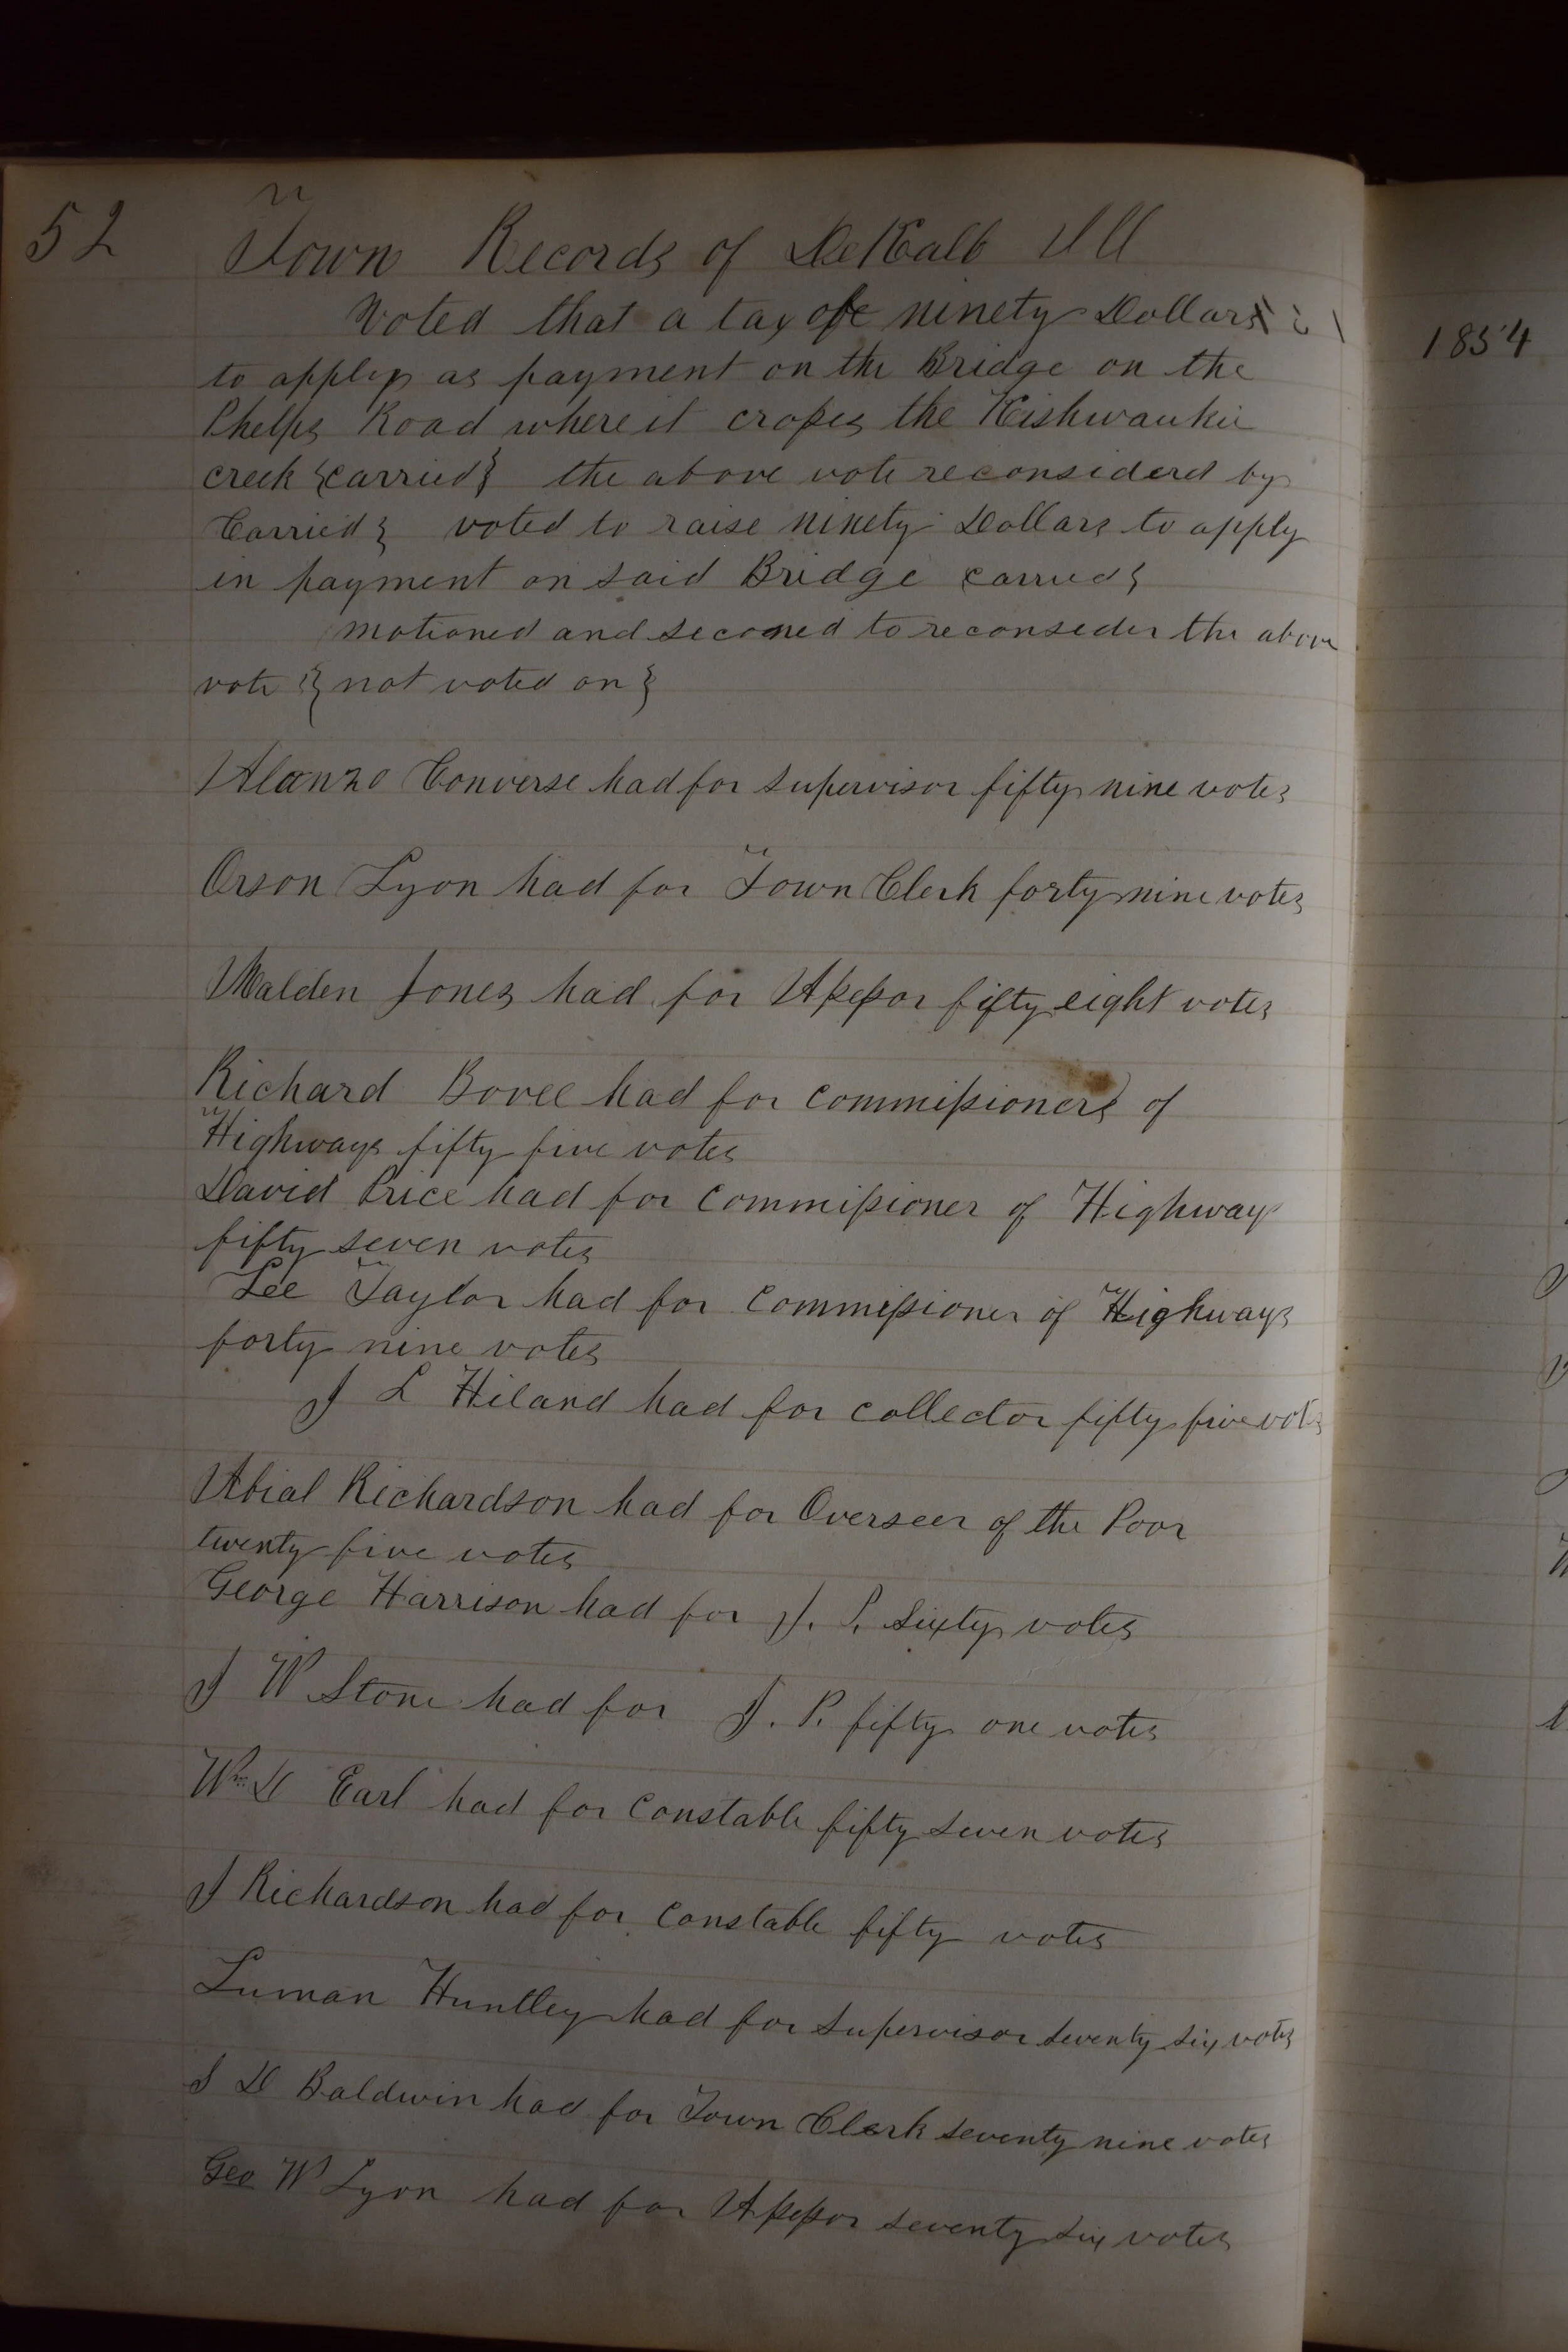 52
Town Records of DeKalb Ill
Voted that a tax of ninety Dollars
to apply as payment on the Bridge on the
Phelps Road where it crosses the Kishwaukie
creek {carried} the above vote reconsidered by
Carried} voted to raise ninety Dollars to apply
in payment on said Bridge carried}
motioned and seconed to reconseder the above
vote } not voted on }
Alanzo Converse had for supervisor fifty nine votes
Orson Lyon had for Town Clerk forty nine votes
Walden Jones had for Assessor fifty eight votes
Richard Bovee had for commissioners of
Highways fifty five votes
David Price had for Commissioner of Highways
fifty seven votes
Lee Taylor had for Commissioner of Highways
forty nine votes
J L Hiland had for collector fifty five votes
Abial Richardson had for Overseer of the Poor
twenty five votes
George Harrison had for J. P. Sixty votes
J W Stone had for J. P. fifty one votes
Wm D Earl had for Constable fifty seven votes
J Richardson had for Constable fifty votes
Luman Huntley had for Supervisor seventy six votes
S D Baldwin had for Town Clerk seventy nine votes
Geo W Lyon had for Assessor seventy six votes
1854